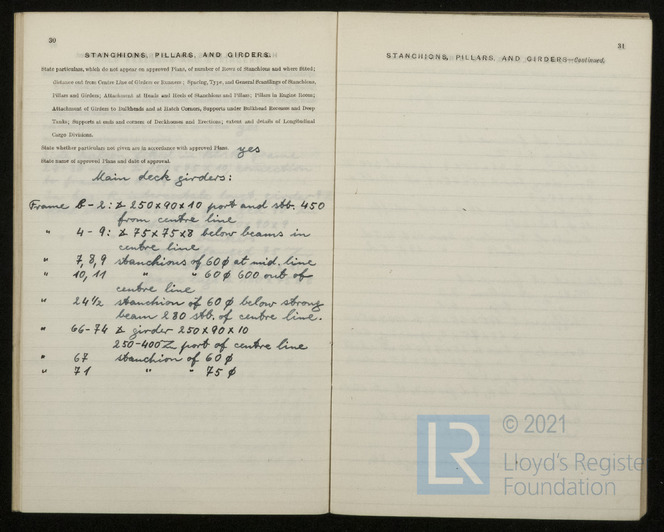 30
STANCHIONS, PILLARS, AND GIRDERS.
State particulars, which do not appear on approved Plans, of number of Rows of Stanchions and where fitted;
distance out from Centre Line of Girders or Runners; Spacing, Type, and General Scantlings of Stanchions,
Pillars and Girders; Attachment at Heads and Heels of Stanchions and Pillars; Pillars in Engine Room;
Attachment of Girders to Bulkheads and at Hatch Corners, Supports under Bulkhead Recesses and Deep
Tanks; Supports at ends and corners of Deckhouses and Erections; extent and details of Longitudinal
Cargo Divisions.
State whether particulars not given are in accordance with approved Plans. yes
State name of approved Plans and date of approval.
Main deck girders:
Frame - 2: 250x90x10 port and stb. 450
from centre line
" 4 - 9: 75x75x8 below beams in
centre line
" 7, 8, 9 stanchions of 60 ϕ at mid. line
" 10, 11 " " 60 ϕ 600 out of
centre line
" 24½ stanchion of 60 ϕ below strong
beam 280 stb. of centre line.
" 66-74 girder 250x90x10
250-400 port of centre line
" 67 stanchion of 60 ϕ
" 71 " " 75 ϕ
31
STANCHIONS, PILLARS, AND GIRDERS—Continued.
LR
© 2021
Lloyd's Register
Foundation